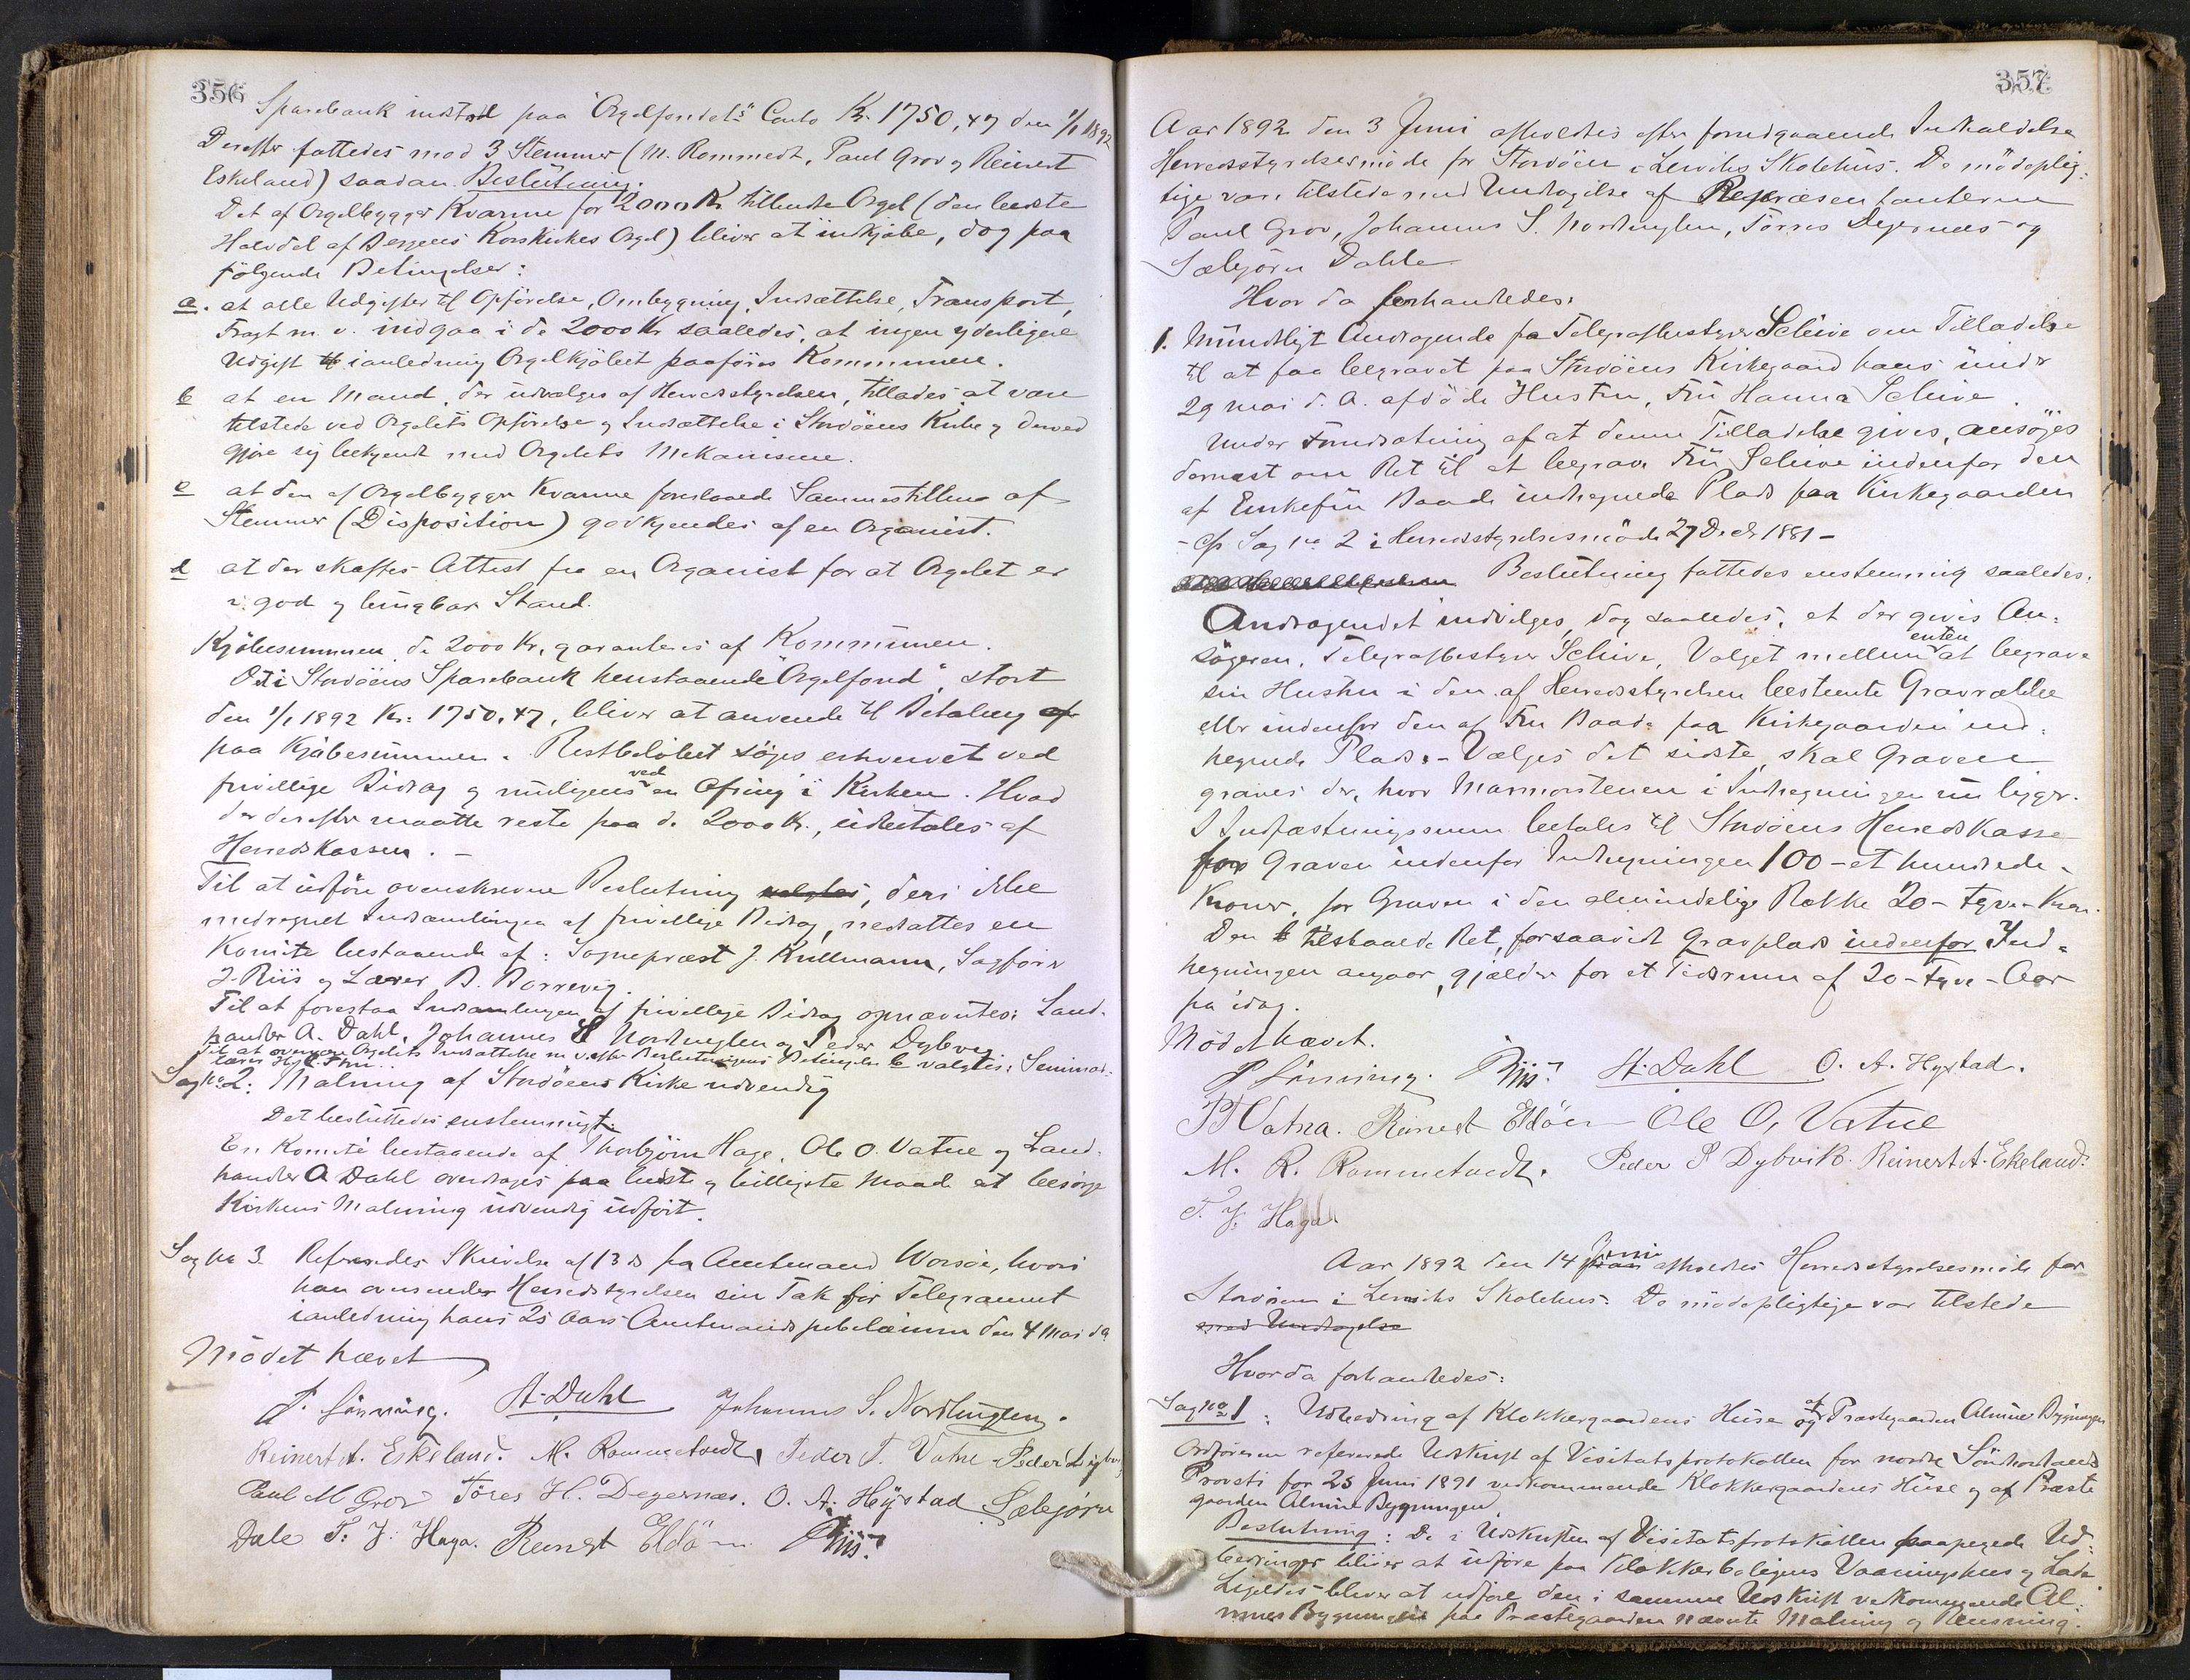 356
Sparebank indstod paa "Orgelfondets" Conto Kr. 1750,47 den 1/1 1892
Derefter fattedes mod 3 Stemmer (M. Rommedt, Paul Grov og Reinert
Eskeland) saadan Beslutning:
Det af Orgelbygger Kvarme for 2000 Kr tilbudte Orgel (den bedste
Halvdel af Bergens Korskirkes Orgel) bliver at indkjøbe, dog paa
følgende Betingelser:
a. at alle Udgifter til Opførelse, Ombygning, Indsættelse, Transport,
Fragt m. v. indgaa i de 2000 Kr saaledes, at ingen yderligere
Udgift ianledning Orgelkjøbet paaføres Kommunen.
b at en Mand, der udvælges af Herredsstyrelsen, tillades at være
tilstede ved Orgelets Opførelse og Indsættelse i Stordøens Kirke og derved
gjøre sig bekjendt med Orgelets Mekanisme.
c at den af Orgelbygger Kvarme foreslaaede Sammenstilling af
Stemmer (Disposition) godkjendes af en Organist.
d at der skaffes Attest fra en Organist for at Orgelet er
i god og brugbar Stand.
Kjøbesummen, de 2000 Kr, garanteres af Kommunen.
Det i Stordøens Sparebank henstaaende "Orgelfond", stort
den 1/1 1892 Kr: 1750,47, bliver at anvende til Betaling af
paa Kjøbesummen. Restbeløbet søges erhvervet ved
frivillige Bidrag og muligens ved en Ofring i Kirken. Hvad
der derefter maatte reste paa de 2000 Kr., udbetales af
Herredskassen. –
Til at udføre ovenskrevne Beslutning valgtes, deri ikke
medregnet Indsamlingen af frivillige Bidrag, nedsattes en
Komite bestaaende af: Sogneprest J. Kullmann, Sagfører
J. Riis og Lærer B. Borrevig.
Til at forestaa Indsamlingen af frivillige Bidrag opnævntes: Land-
handler A. Dahl, Johannes S Nordhuglen og Peder Dybvig
Til at overvære Orgelets Indsættelse m v. efter Beslutningens Betingelse b valgtes: Seminar-
lærer
Sag No 2: Malning af Stordøens Kirke udvendig
Det besluttedes enstemmigt:
En Komité bestaaende af Thorbjørn Hage, Ole O. Vatne og Land-
handler A Dahl overdrages paa bedste og billigste Maade at besørge
Kirkens Malning udvendig udført.
Sag No 3. Refereredes Skrivelse af 13 ds fra Amtmand Worsøe, hvori
han oversender Herredsstyrelsen sin Tak for Telegrammet
ianledning hans 25 Aars Amtmandsjubelæum den 4 Mai da
Mødet hævet
P. Lønning. A. Dahl Johannes S. Nordhuglen.
Reinert A. Eskeland. M. Rommetvedt, Peder T. Vatne Peder Dybvig
Paul M Grov Töres H. Degernæs. O. A. Hystad Sæbjørn
Dale T. J. Haga. Reinert Eldöen Riis.
357
Aar 1892 den 3 Juni afholdtes efter forudgaaende Indkaldelse
Herredsstyrelsesmøde for Stordøen i Lerviks Skolehus. De mødeplig-
tige vare tilstede med Undtagelse af Repræsentanterne
Paul Grov, Johannes S. Nordhuglen, Tørres Degernæs og
Sæbjørn Dahle
Hvor da forhandledes:
1. Mundtligt Andragende fra Telegrafbestyrer Schive om Tilladelse
til at faa begravet paa Stordøens Kirkegaard hans under
29 mai d. A. afdøde Hustru, Fru Hanna Schive.
Under Forudsætning af at denne Tilladelse gives, ansøges
dernæst om Ret til at begrave Fru Schive indenfor den
af Enkefru Baade indhegnede Plads paa Kirkegaarden
– cfr Sag No 2 i Herredsstyrelsesmøde 27 Decbr 1881 –
Beslutning fattedes enstemmig saaledes:
Andragendet indvilges, dog saaledes, at der gives An-
søgeren, Telegrafbestyrer Schive, Valget mellem enten at begrave
sin Hustru i den af Herredsstyrelsen bestemte Gravrække
eller indenfor den af Fru Baade paa Kirkegaarden ind-
hegnede Plads. – Vælges det sidste, skal Graven
graves der, hvor Marmorstenen i Indhegningen nu ligger.
I Indfæstningssum betales til Stordøens Herredskasse
for Graven indenfor Indhegningen 100 – et hundrede –
Kroner, for Graven i den almindelige Række 20 – tyve – Kron.
Den tilstaaede Ret, forsaavidt Gravplads indenfor Ind-
hegningen angaar, gjælder for et Tidsrum af 20 – tyve – Aar
fra idag.
Mødet hævet.
P Lønning. Riis. A. Dahl O. A. Hystad.
P T Vatna. Reinert Eldöen Ole O, Vatne
M. R. Rommetvedt. Peder P Dybvik. Reinert A. Eskeland.
T. J. Haga.
Aar 1892 den 14 Juni afholdtes Herredsstyrelsesmøde for
Stordøen i Lerviks Skolehus. De mødepligtige var tilstede
med Undtagelse
Hvor da forhandledes:
Sag No 1: Udbedring af Klokkergaardens Huse og af Præstegaarden Almue Bygningen
Ordføreren refererede Udskrift af Visitatsprotokollen for nordre Søndhordlands
Provsti for 25 Juni 1891 vedkommende Klokkergaardens Huse og af Præste
gaarden Almue Bygningen.
Beslutning: De i Udskriften af Visitatsprotokollen paapegede Ud-
bedringer bliver at udføre paa Klokkerboligens Vaaningshus og Lade
Ligeledes bliver at udføre den i samme Udskrift vedkommende Al-
mues Bygningen paa Præstegaarden nævnte Malning og Rensning.